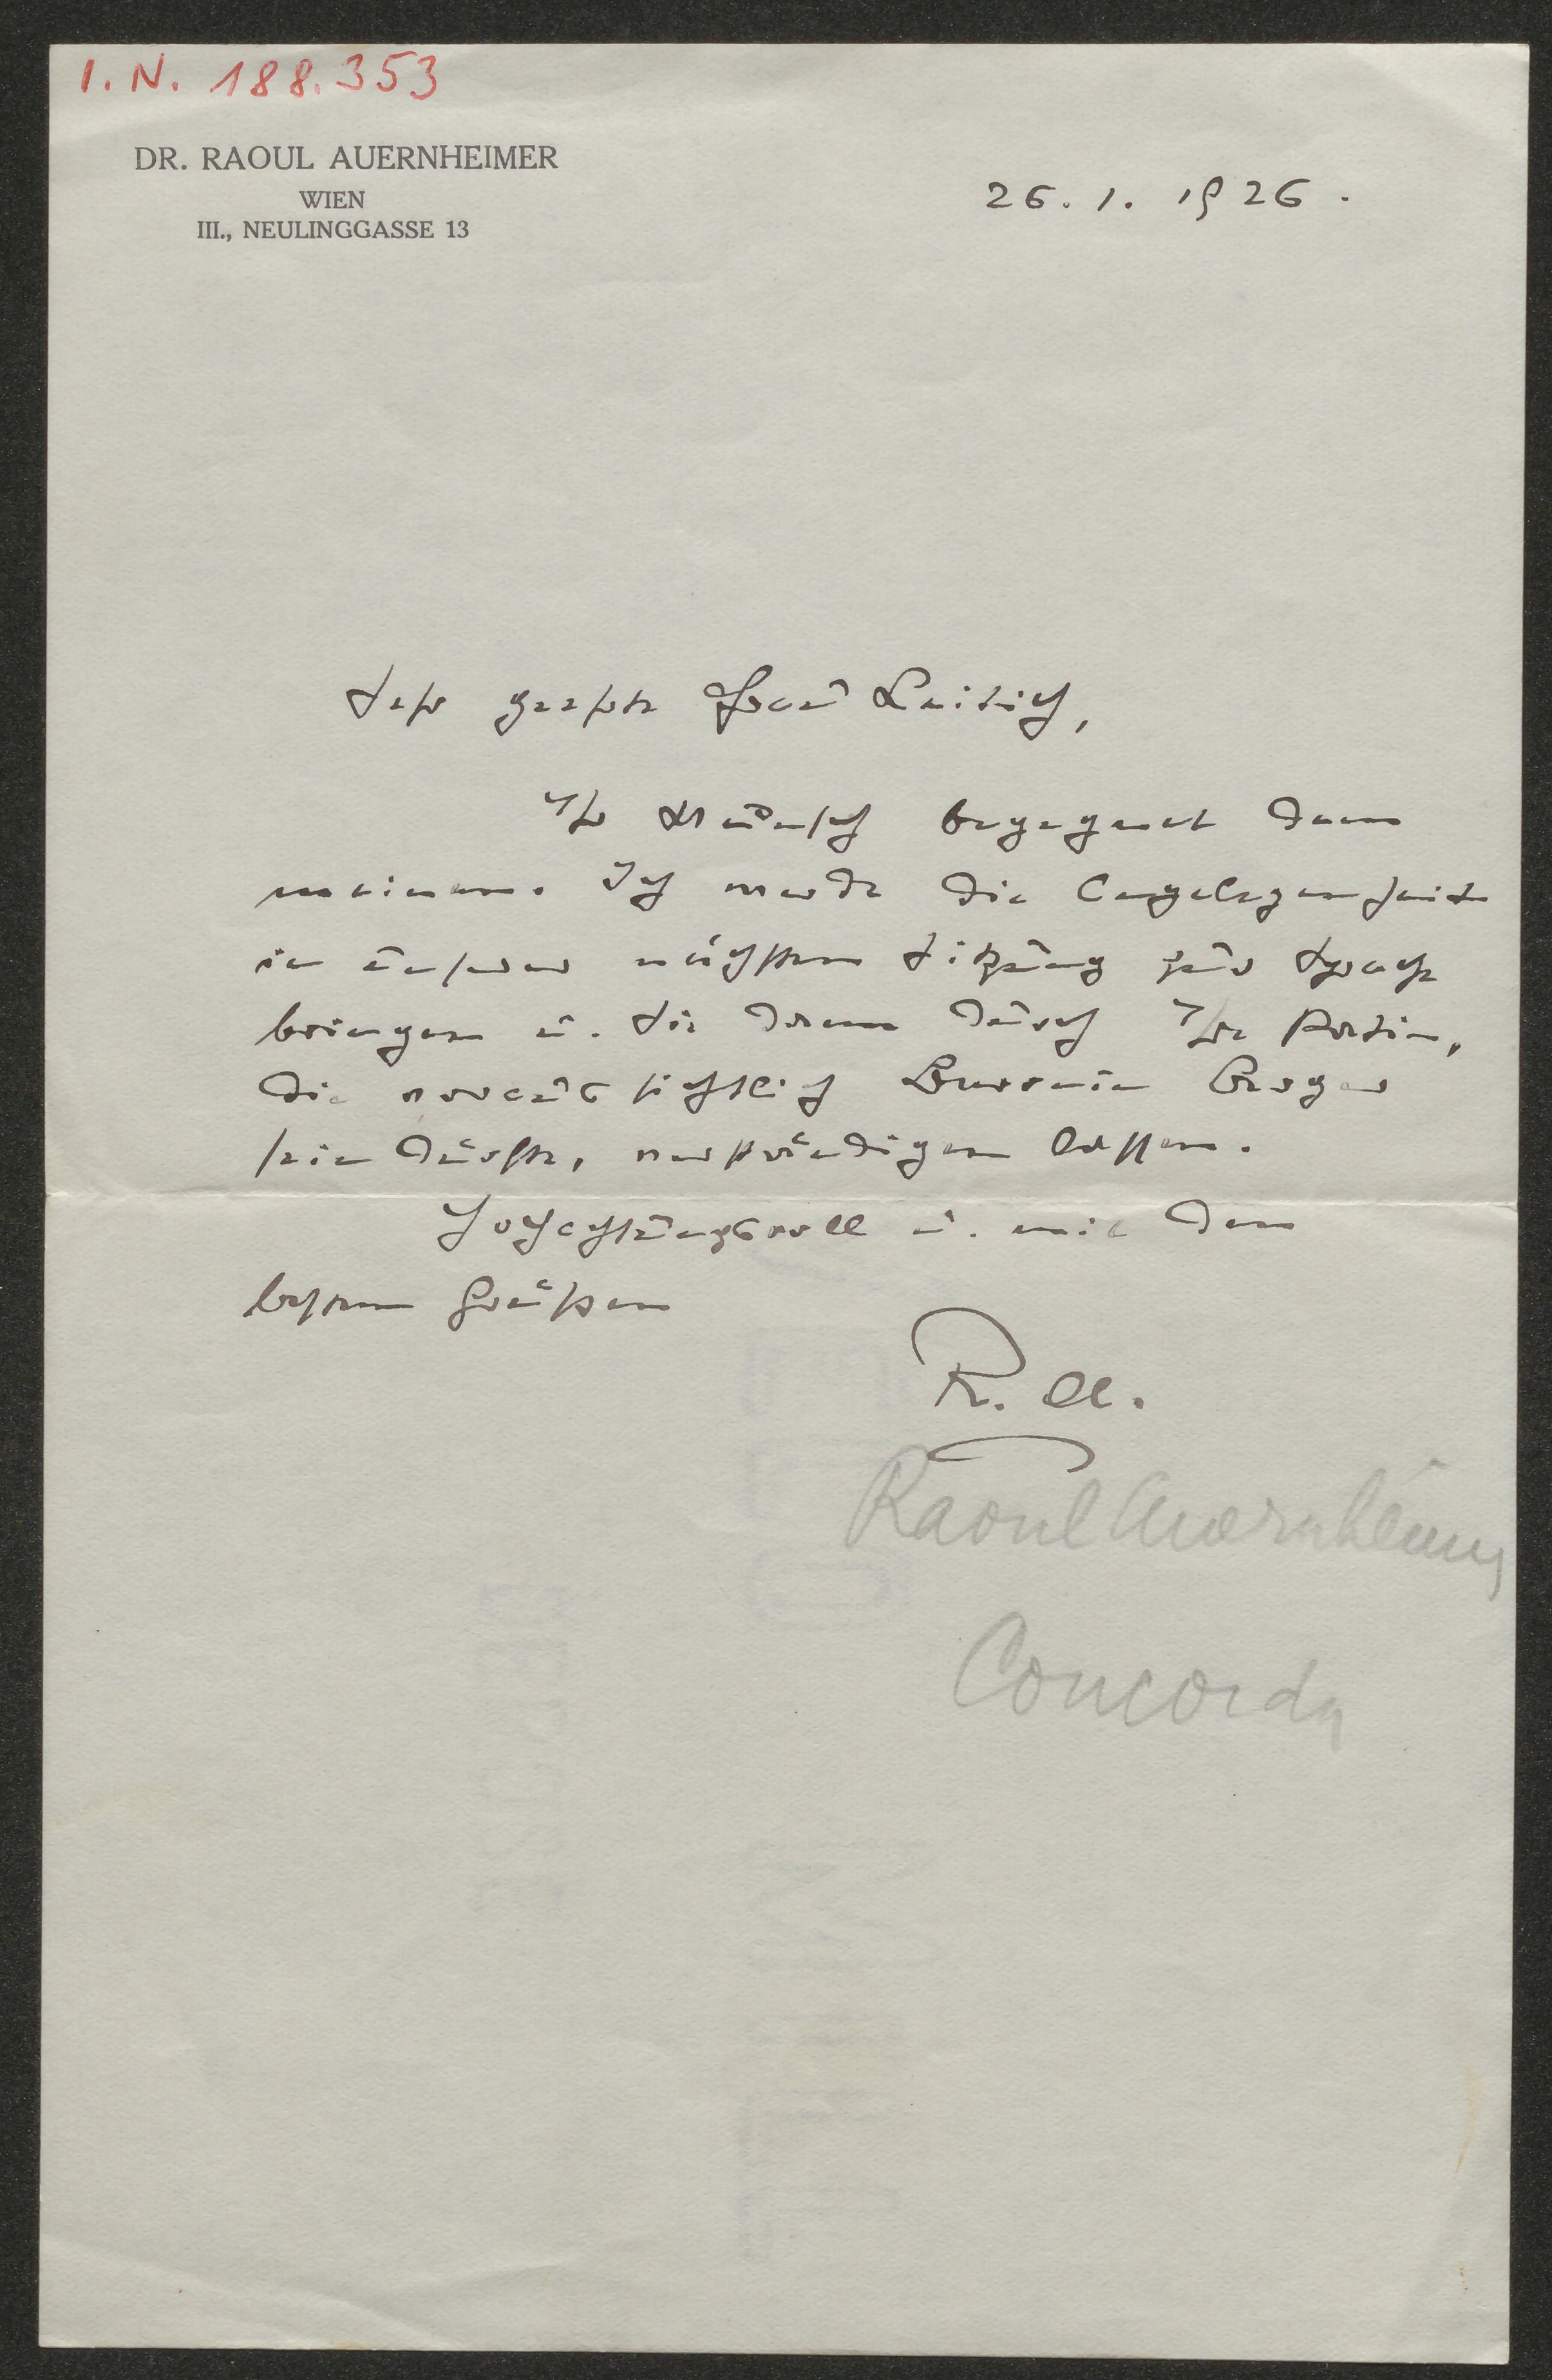 I. N. 188.353
DR. RAOUL AUERNHEIMER
WIEN
III., NEULINGGASSE 13
26. 1. 1926.
Sehr geehrte Frau Leitich,
Ihr Wunsch begegnet dem
meinen. Ich werde die Angelegenheit
in unserer nächsten Sitzung zur Sprache
bringen u. Sie dann durch Ihre Patin,
die voraussichtlich Baronin Berger
sein dürfte, verständigen lassen.
Hochachtungsvoll u. mit den
besten Grüßen
R. A.
Raoul Auernheimer
Concordia